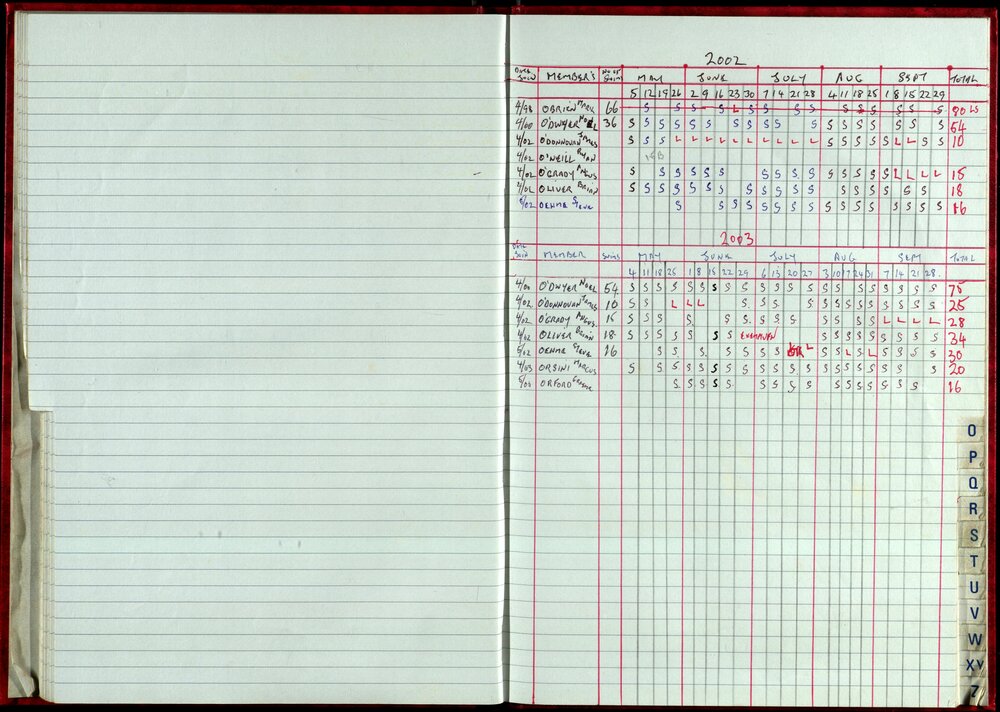 2002
DATE JOIN MEMBER'S NO OF SWIMS MAY JUNE JULY AUG SEPT TOTAL
5 12 19 26 2 9 16 23 30 7 14 21 28 4 11 18 25 1 8 15 22 29
4/98 O'BRIEN MARK 66 S S S S S L S S S S S S S S S S 80 LS
4/00 O'DWYER NOEL 36 S S S S S S S S S S S S S S S S S S 54
4/02 O'DONNOVAN JAMES S S S L L L L L L L L L L S S S S S L L S S 10
4/02 O'NEILL RYAN
4/02 O'GRADY ANGUS S S S S S S S S S S S S S S S L L L L 15
4/02 OLIVER BRIAN S S S S S S S S S S S S S S S S S 18
5/02 OEHME STEVE S S S S S S S S S S S S S S S S 16
2003
DATE JOIN MEMBER SWIMS MAY JUNE JULY AUG SEPT TOTAL
4 11 18 25 1 8 15 22 29 6 13 20 27 3 10 17 24 31 7 14 21 28
4/00 O'DWYER NOEL 54 S S S S S S S S S S S S S S S S S S S S S 75
4/02 O'DONNOVAN JAMES 10 S S L L L S S S S S S S S S S S S S 25
4/02 O'GRADY ANGUS 15 S S S S S S S S S S S S S L L L L 28
4/02 OLIVER BRIAN 18 S S S S S S S S S S S S S S S S 34
5/02 OEHME STEVE 16 S S S S S S S L S S L S L S S S S 30
4/03 ORSINI MARCUS S S S S S S S S S S S S S S S S S S S S 20
5/03 ORFORD GEORGE S S S S S S S S S S S S S S S S 16
O
P
Q
R
S
T
U
V
W
X Y
Z